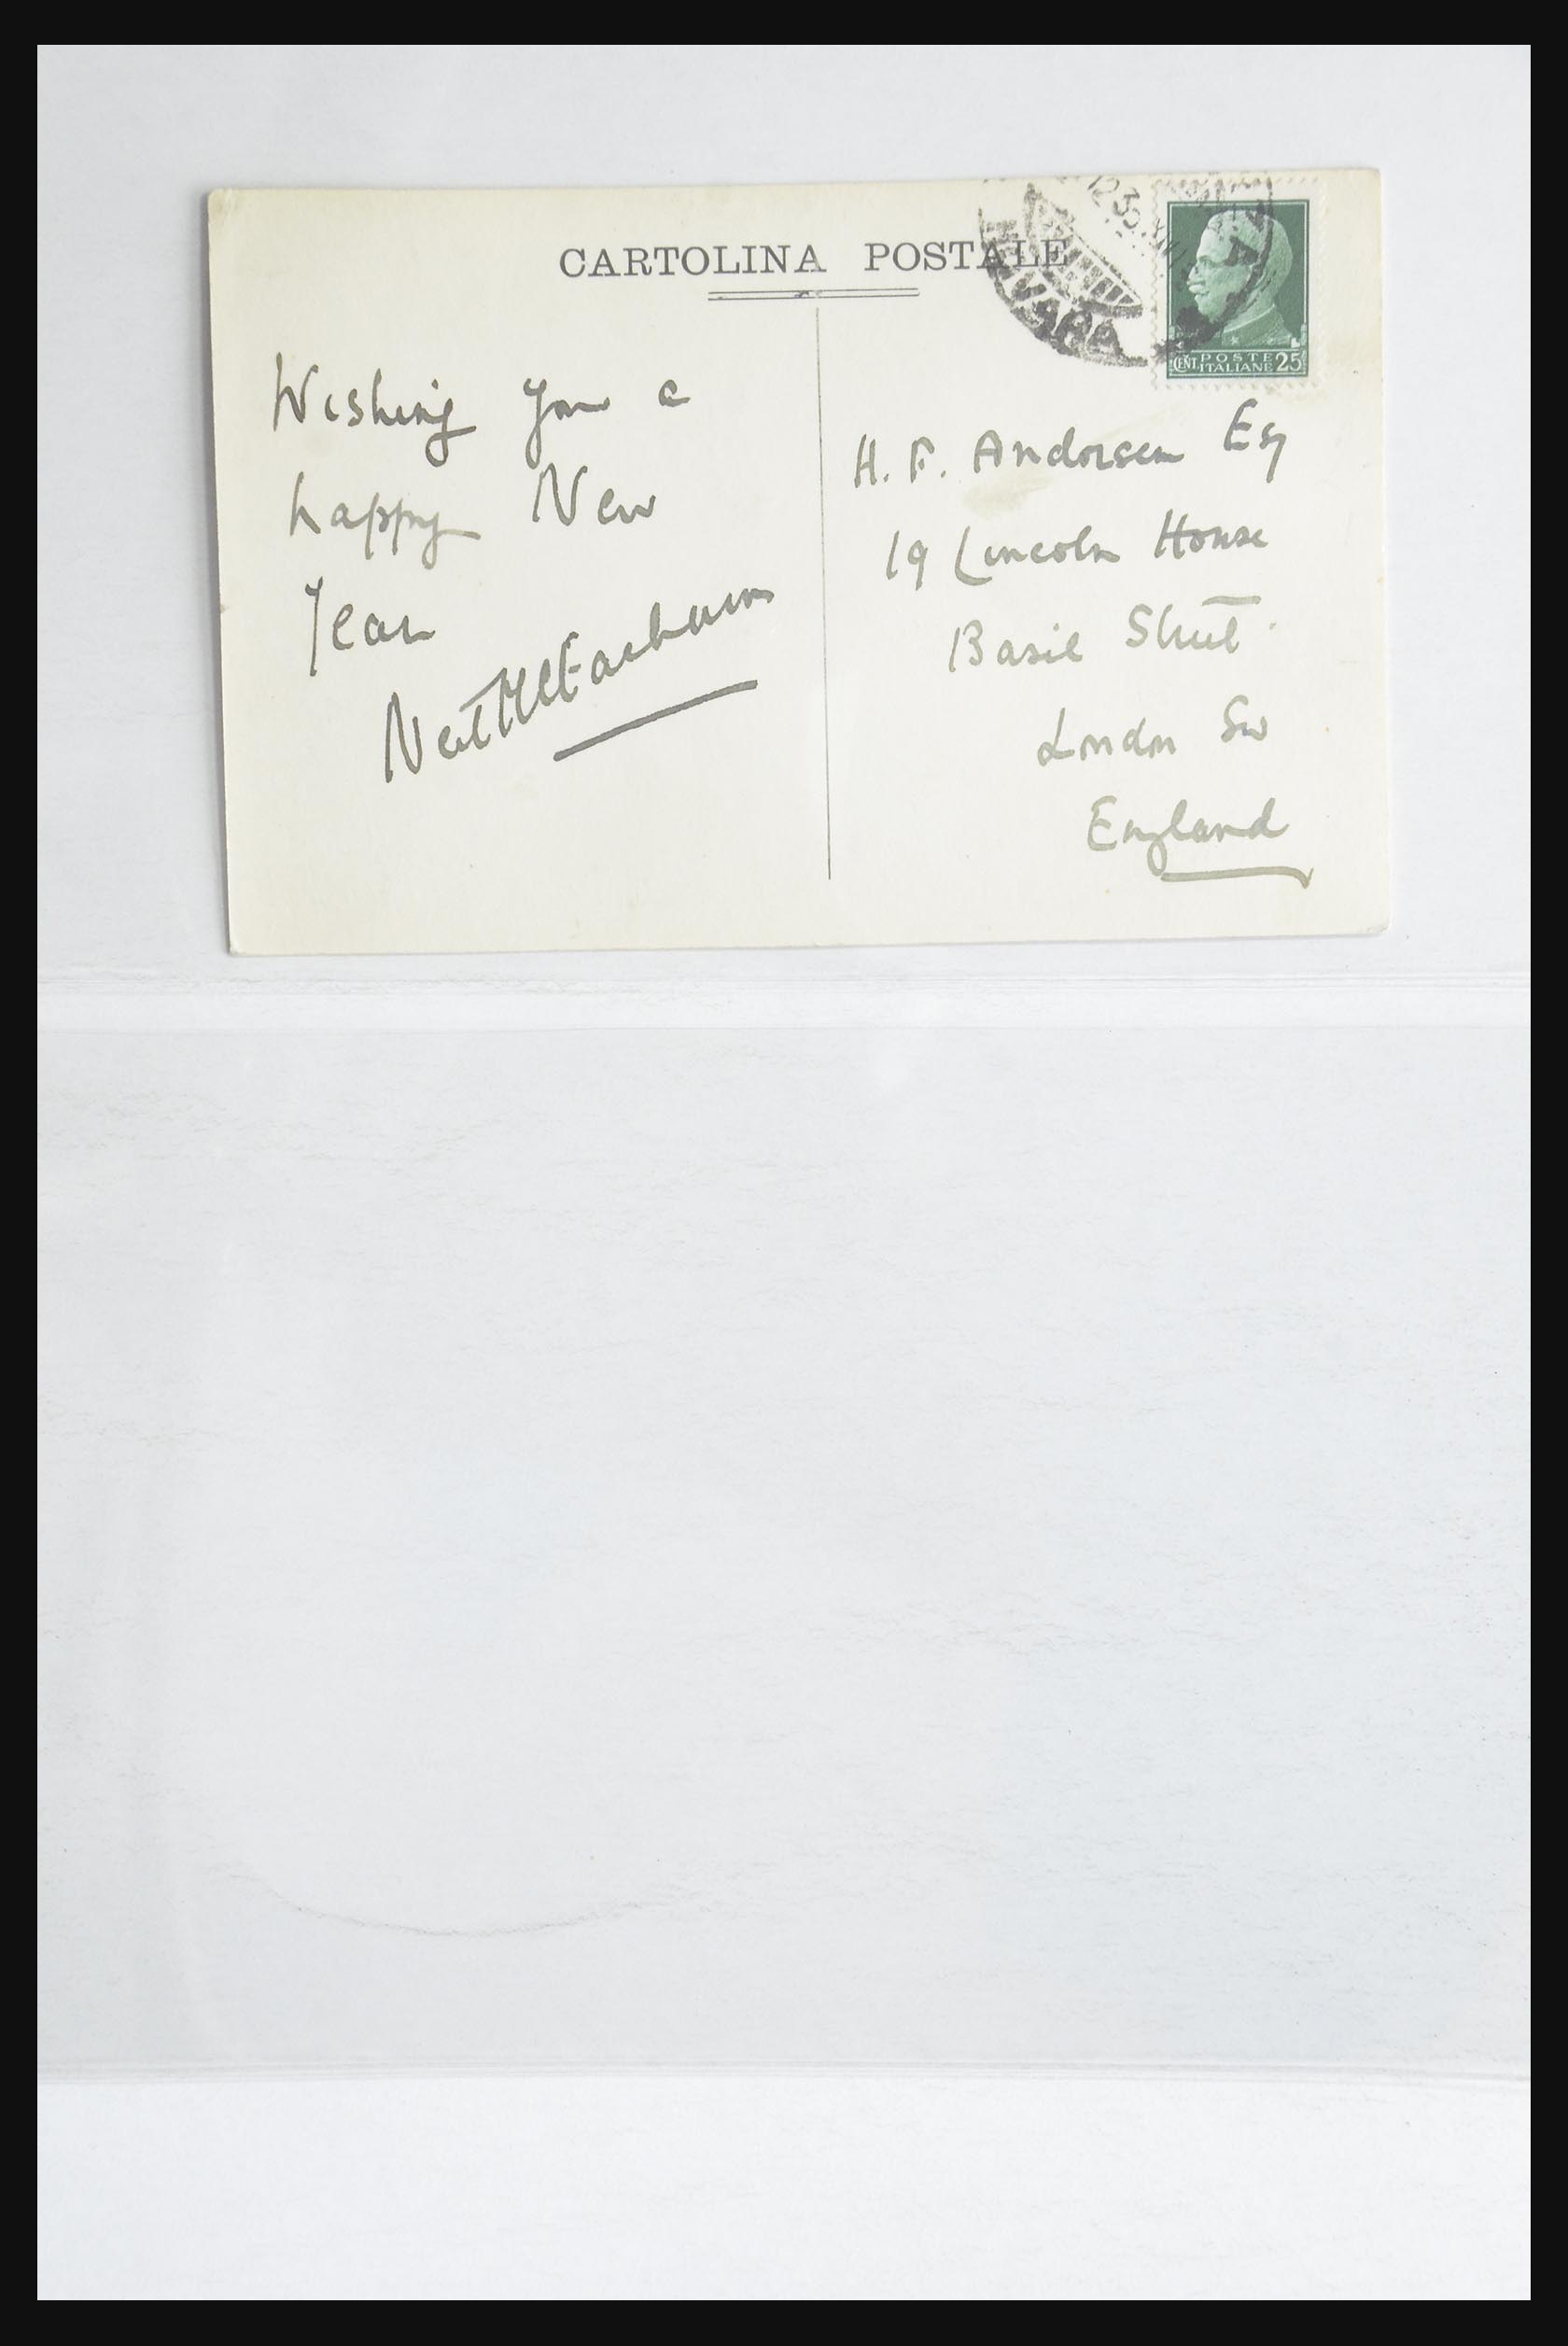 CARTOLINA POSTALE
12 35 XIV
CENT. POSTE ITALIANE 25
Wishing you a
happy New
Year
Neil McEacharn
H. F. Andorsen Esq
19 Lincoln House
Basil Street
London SW
England